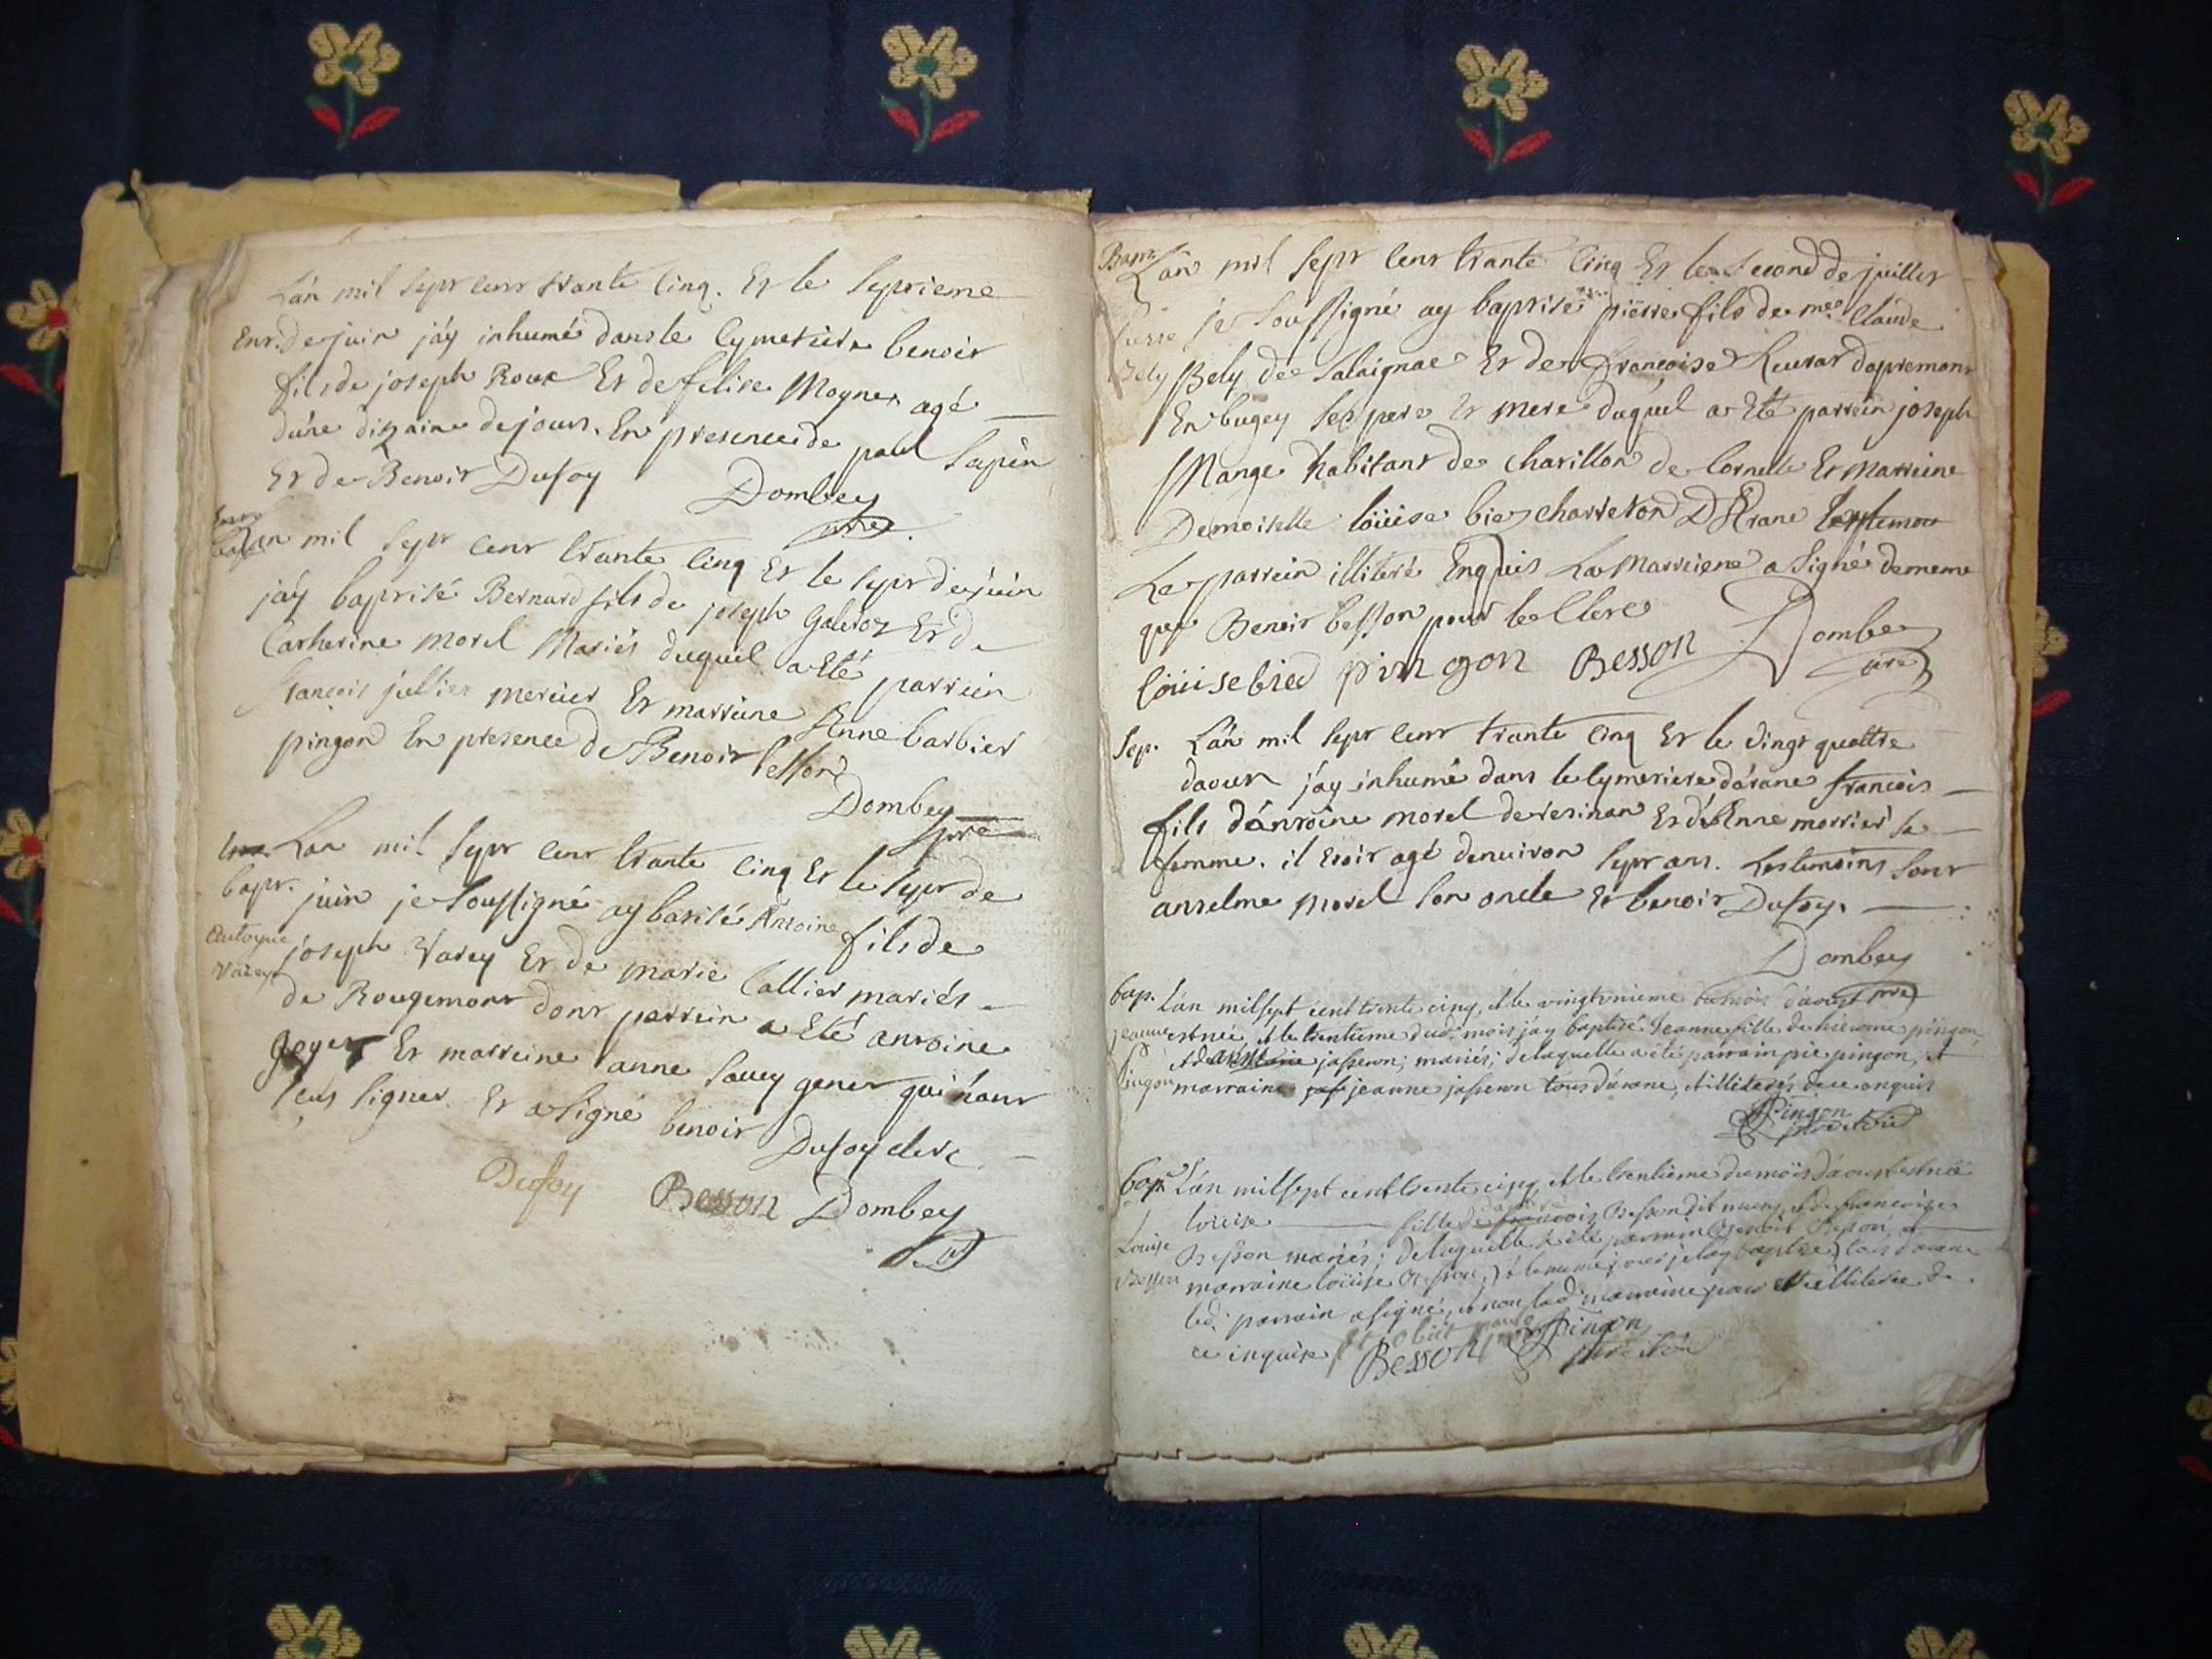 Lán mil sept cent trante cinq. Et le septieme
Enr. de juin jáy inhumé dans le cymetiere benoit
fils de joseph Roux Et de felise Moyne agé
dúne dizaine de jours. En presence de paul Sapin
Et de Benoit Dufoy
Dombey
Lan mil sept cent trante cinq Et le sept de juin
jáy baptisé Bernard fils de joseph Et de
Catherine morel Mariés duquel a Eté parrein
francois jullier mercier Et marreine Anne barbier
pingon En presence de Benoit besson
Dombey
ptre
Lan mil sept cent trante cinq Et le sept de
bapt. juin je soussigné ay batisé Antoine fils de
Antoyne
Varey
joseph Varey Et de marie Callier mariés
de Rougemont dont parrein a Eté antoine
goyet Et marreine anne savey genet qui nont
sceus signer Et a signé benoit Dufoy clerc
Dufoy Besson Dombey
Bapt. Lán mil sept cent trante cinq Et le second de juillet
pierre je soussigné ay baptisé pierre fils de me Claude
Bely Bely de Salaignac Et de francoise dapremont
En bugey ses pere Et mere duquel a Eté parrein joseph
Mange habitant de chatillon de Cornelle Et marreine
Demoiselle loüise bié charreton DArane
Le parrein illiteré Enquis La Marreiene a signé de meme
que Benoit besson pour le Clerc
loüise bied pingon Besson Dombey
ptre
Sep. Lán mil sept cent trante cinq Et le vingt quattre
daoust jáy inhumé dans le cymetiere dárane francois
fils dántoine morel de resinan Et dÁnne morrier sa
femme. il etoit agé denuiron sept ans. Les temoins sont
anselme morel son oncle Et benoit Dufoy.
Dombey
ptre
bap. Lán mil sept cent trente cinq, et le vingtunieme du mois dáoust
jeanne est née, et le trentieme dud. mois jay baptisé Jeanne fille de hierome pingon,
pingon et de Marie jasseron; mariés; de laquelle a été parrain pie pingon, et
marraine jeanne jasseron tous dárane, et illiterés de ce enquis
Pingon
bapt. Lán mil sept cent trente cinq et le trentieme du mois dáoust est née
loüise fille de francois Besson dit muny et de francoise
Louise
Besson
Besson mariés; de laquelle a été parrain Benoit Besson, et
marraine loüise Besson, et le meme jour je láy baptisé, tous dárane
led. parrain a signé, et non lad. marraine pour etre illiterée de
ce inquise
Besson Pingon